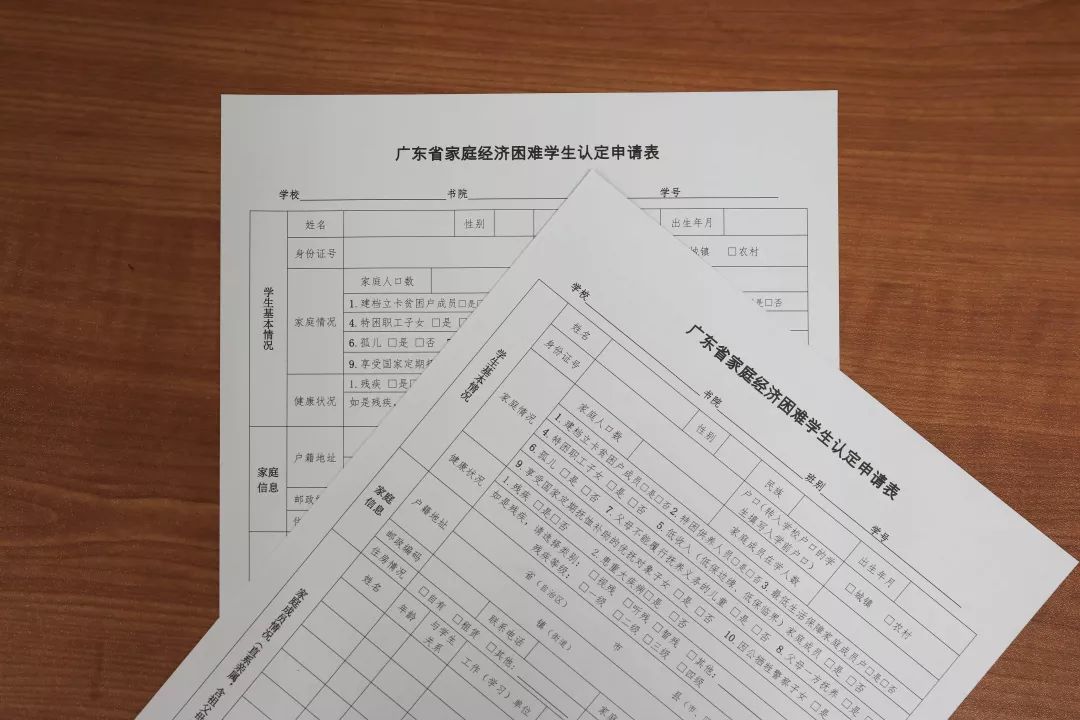 广东省家庭经济困难学生认定申请表
学校 书院 学号
姓名 性别 出生年月
身份证号 城镇 □农村
学生基本情况
家庭情况
家庭人口数
1.建档立卡贫困户成员□是□
4.特困职工子女 □是
6.孤儿 □是 □否
9.享受国家定期
健康状况
1.残疾 □是
如是残疾,
家庭信息
户籍地址
邮政
广东省家庭经济困难学生认定申请表
学校 书院 班别 学号
学生基本情况
姓名 性别 民族 出生年月
身份证号 户口(转入学校户口的学生填写入学前户口) □城镇 □农村
家庭情况
家庭人口数 家庭成员在学人数
1.建档立卡贫困户成员□是□否 2.特困供养人员□是□否 3.最低生活保障家庭成员户□是□否
4.特困职工子女 □是 □否 5.低收入(低保边缘、低保临界)家庭成员 □是 □否
6.孤儿 □是 □否 7.父母不能履行抚养义务的儿童 □是 □否 8.父母一方抚养 □是
9.享受国家定期抚恤补助的优抚对象子女 □是 □否 10.因公牺牲警察子女 □是
健康状况
1.残疾 □是□否 2.患重大疾病□是 □否
如是残疾,请选择类别: □视残 □听残 □智残 □其他:
残疾等级: □一级 □二级 □三级 □四级
家庭信息
户籍地址 省(自治区) 市 县(市、
镇(街道)
邮政编码 联系电话
住房情况 □自有 □租赁 □其他:
家庭成员情况(直系亲属,含祖父母
姓名 年龄 与学生关系 工作(学习)单位